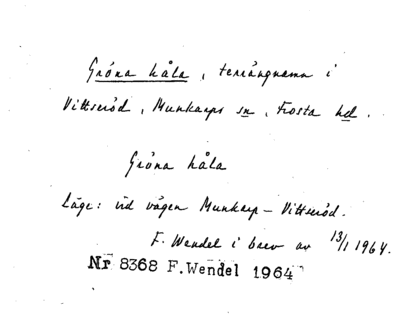 Gröna håla, terrängnamn i
Vittseröd, Munkarps sn, Frosta hd.
Gröna håla
Läge: vid vägen Munkarp – Vittseröd.
F. Wendel i brev av 13/1 1964.
Nr 8368 F.Wendel 1964